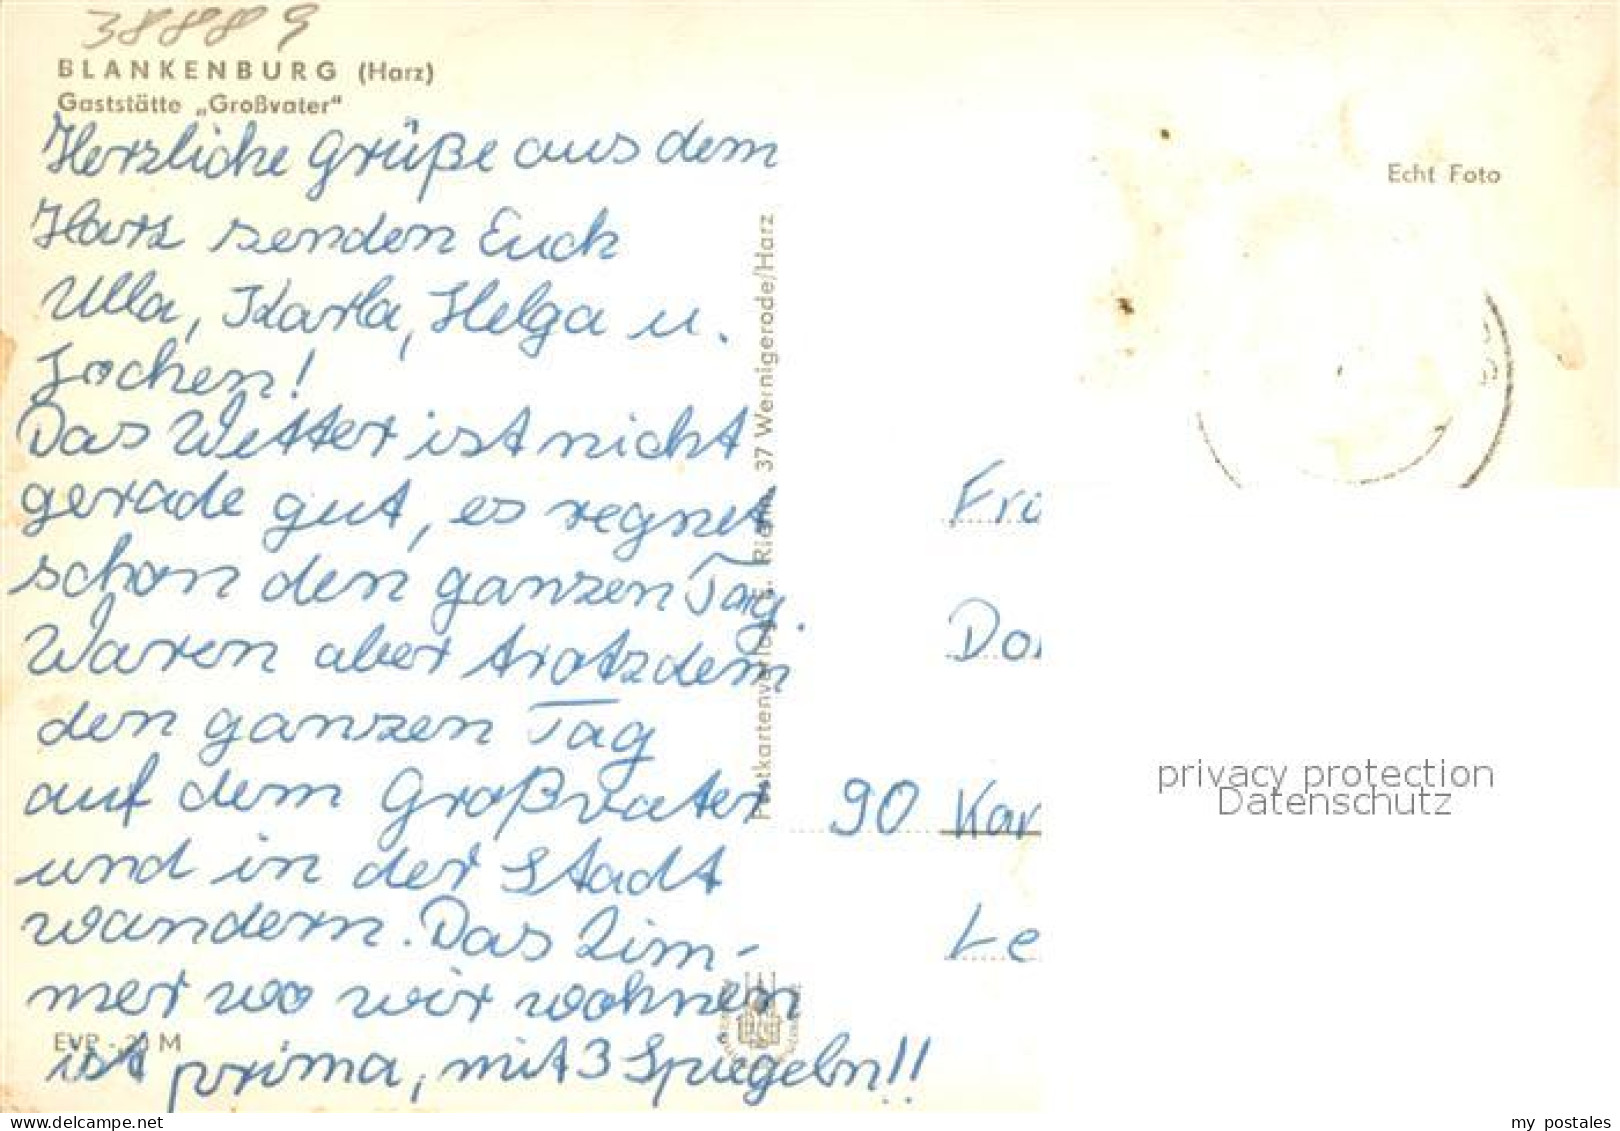 38889
BLANKENBURG (Harz)
Gaststätte „Großvater"
Herzliche Grüße aus dem
Harz senden Euch
Ulla, Karla, Helga u.
Jochen!
Das Wetter ist nicht
gerade gut, es regnet
schon den ganzen Tag.
Waren aber trotzdem
den ganzen Tag
auf dem Großvater
und in der Stadt
wandern. Das Zim-
mer wo wir wohnen
ist prima, mit 3 Spiegeln!!
EVP - 20 M
37 Wernigerode/Harz
Echt Foto
90 Kar
Le
privacy protection
Datenschutz
www.delcampe.net
my_postales